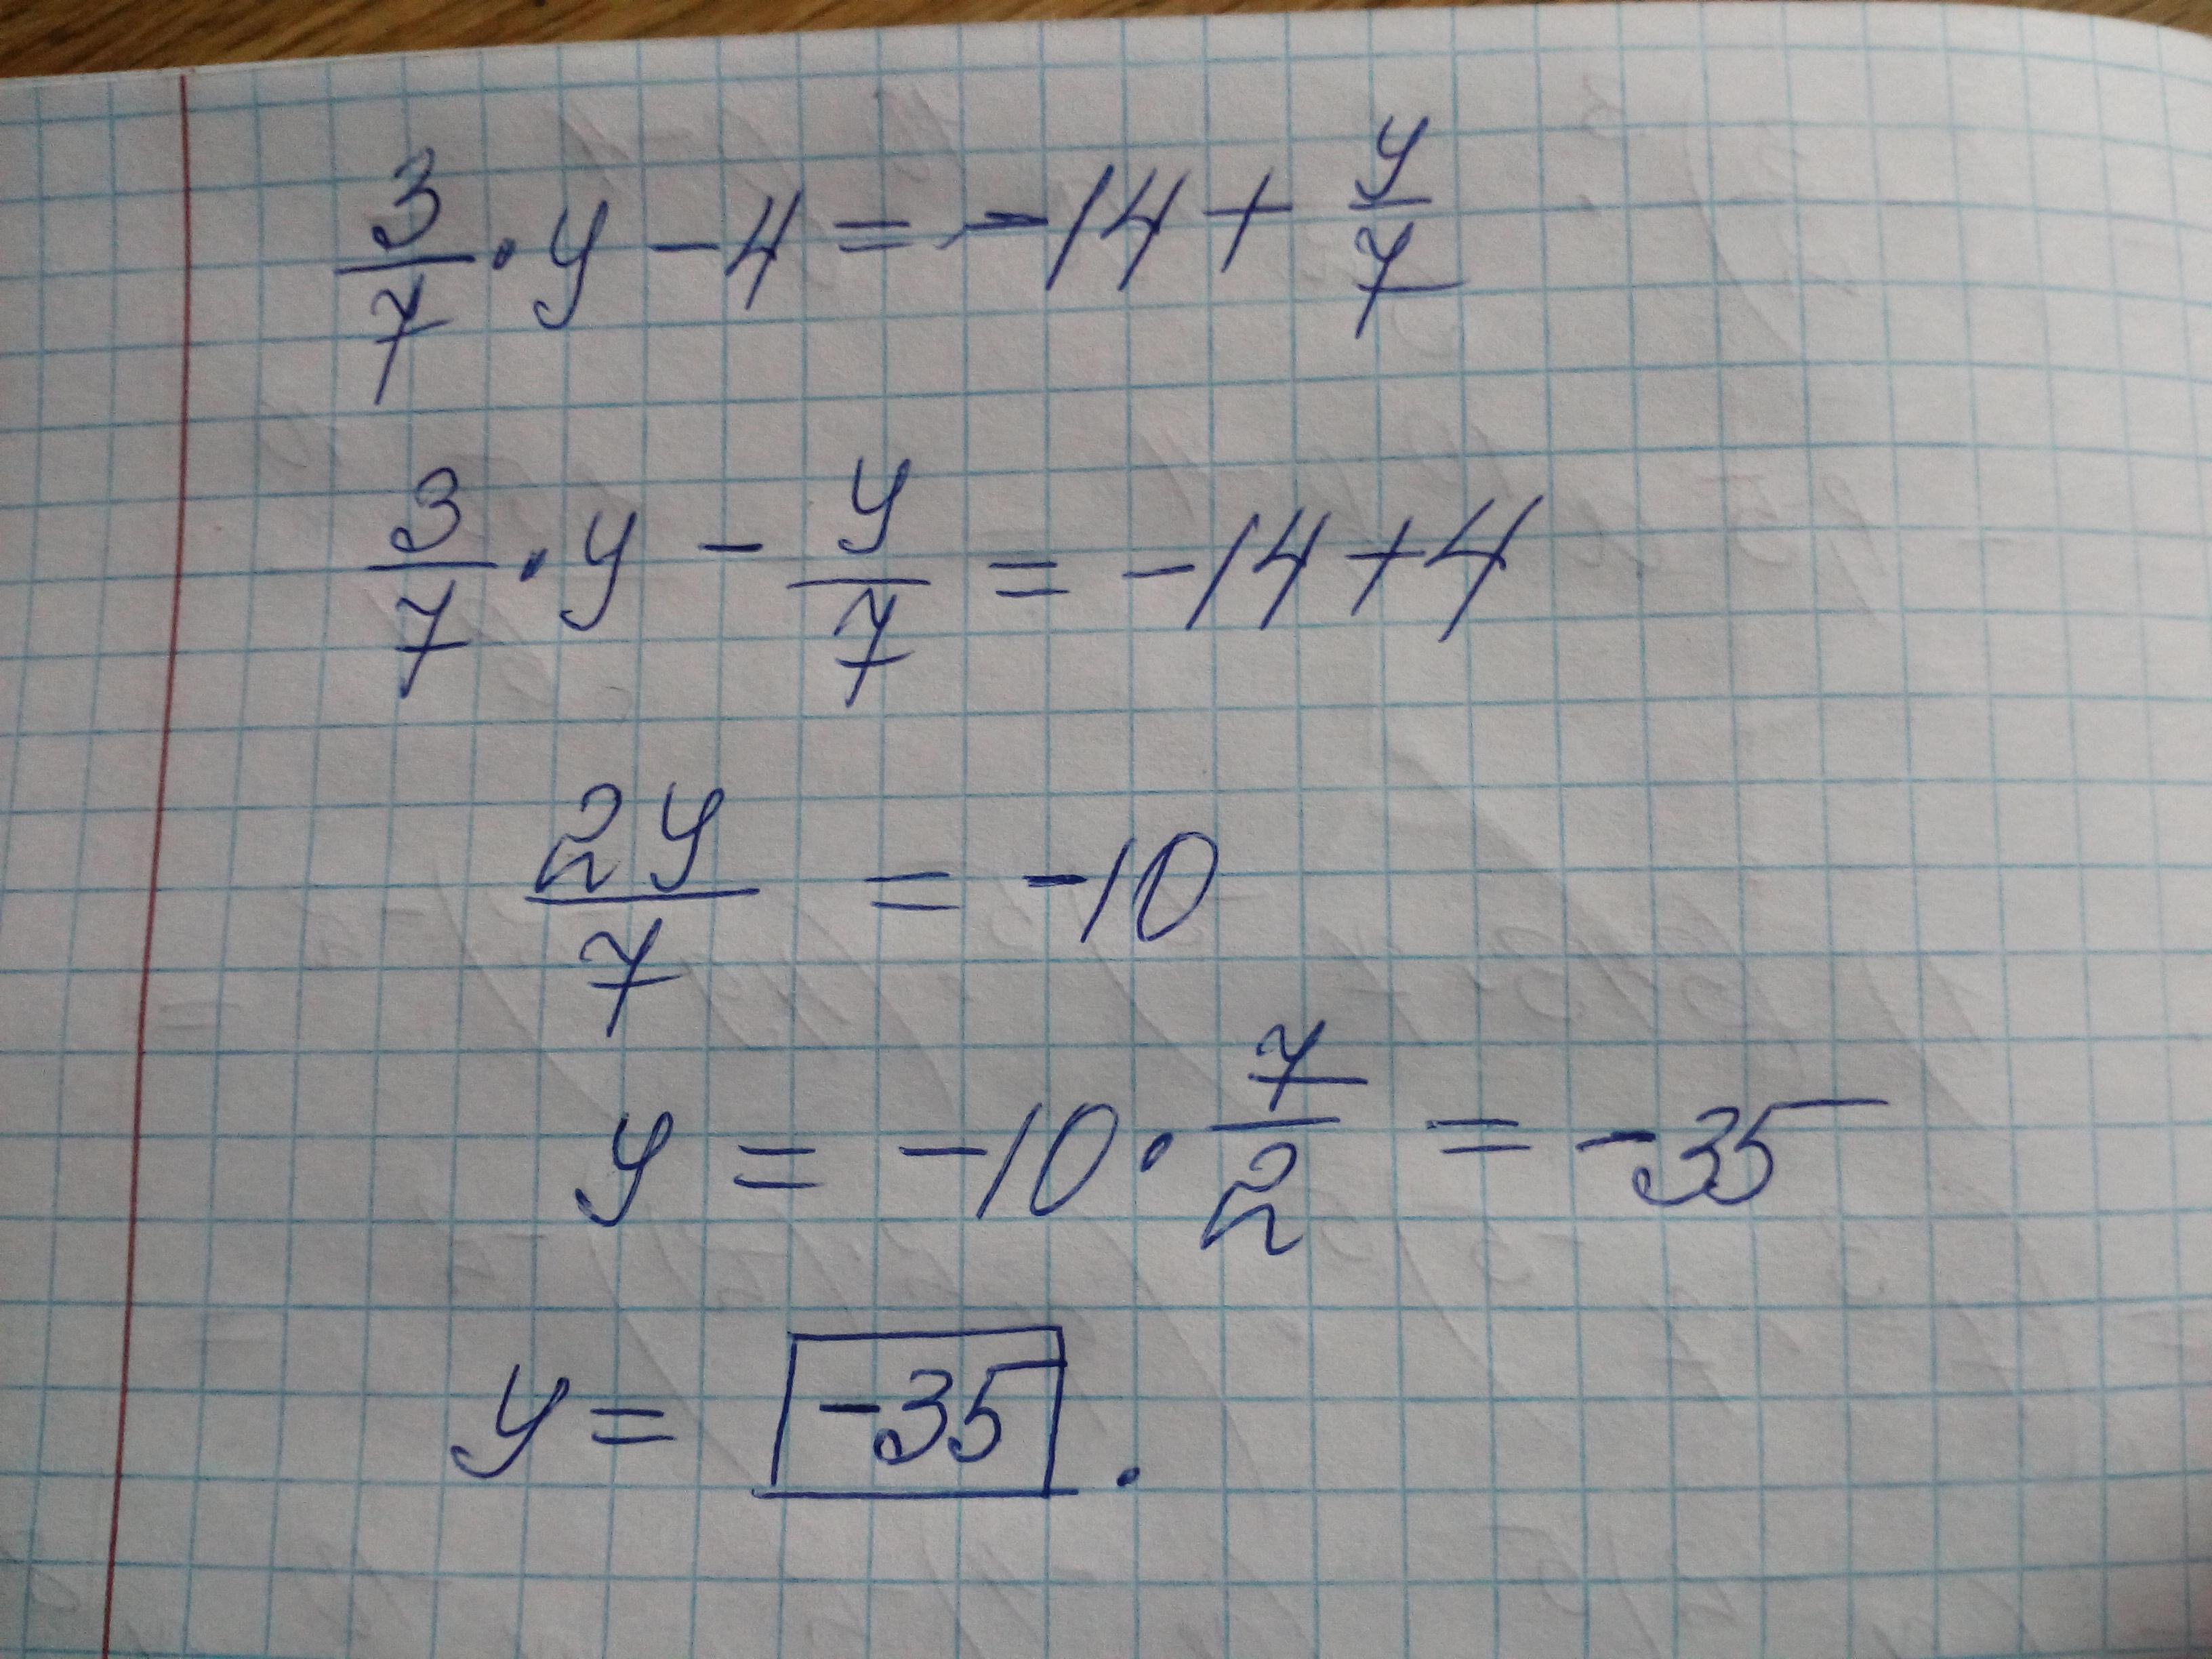 3/7 · y - 4 = -14 + y/7
3/7 · y - y/7 = -14 + 4
2y/7 = -10
y = -10 · 7/2 = -35
y = -35.